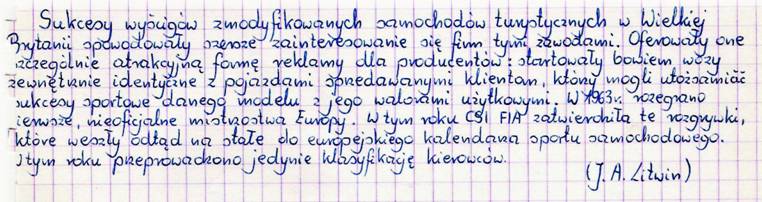 Sukcesy wyścigów zmodyfikowanych samochodów turystycznych w Wielkiej
Brytanii spowodowały szersze zainteresowanie się firm tymi zawodami. Oferowały one
szczególnie atrakcyjną formę reklamy dla producentów: startowały bowiem wozy
zewnętrznie identyczne z pojazdami sprzedawanymi klientom, którzy mogli utożsamiać
sukcesy sportowe danego modelu z jego walorami użytkowymi. W 1963 r. rozegrano
ierwsze, nieoficjalne mistrzostwa Europy. W tym roku CSI FIA zatwierdziła te rozgrywki,
które weszły odtąd na stałe do europejskiego kalendarza sportu samochodowego.
W tym roku przeprowadzono jedynie klasyfikację kierowców.
(J. A. Litwin)